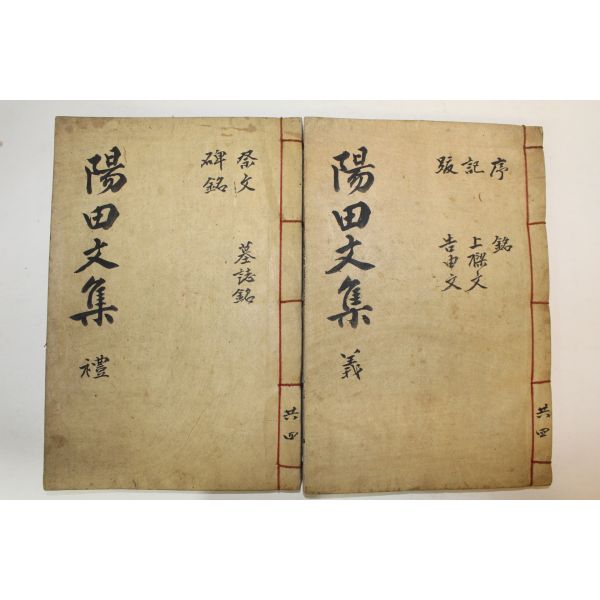 共四
序 銘
記 上樑文
跋 告由文
陽田文集 義
共四
祭文 墓誌銘
碑銘
陽田文集 禮